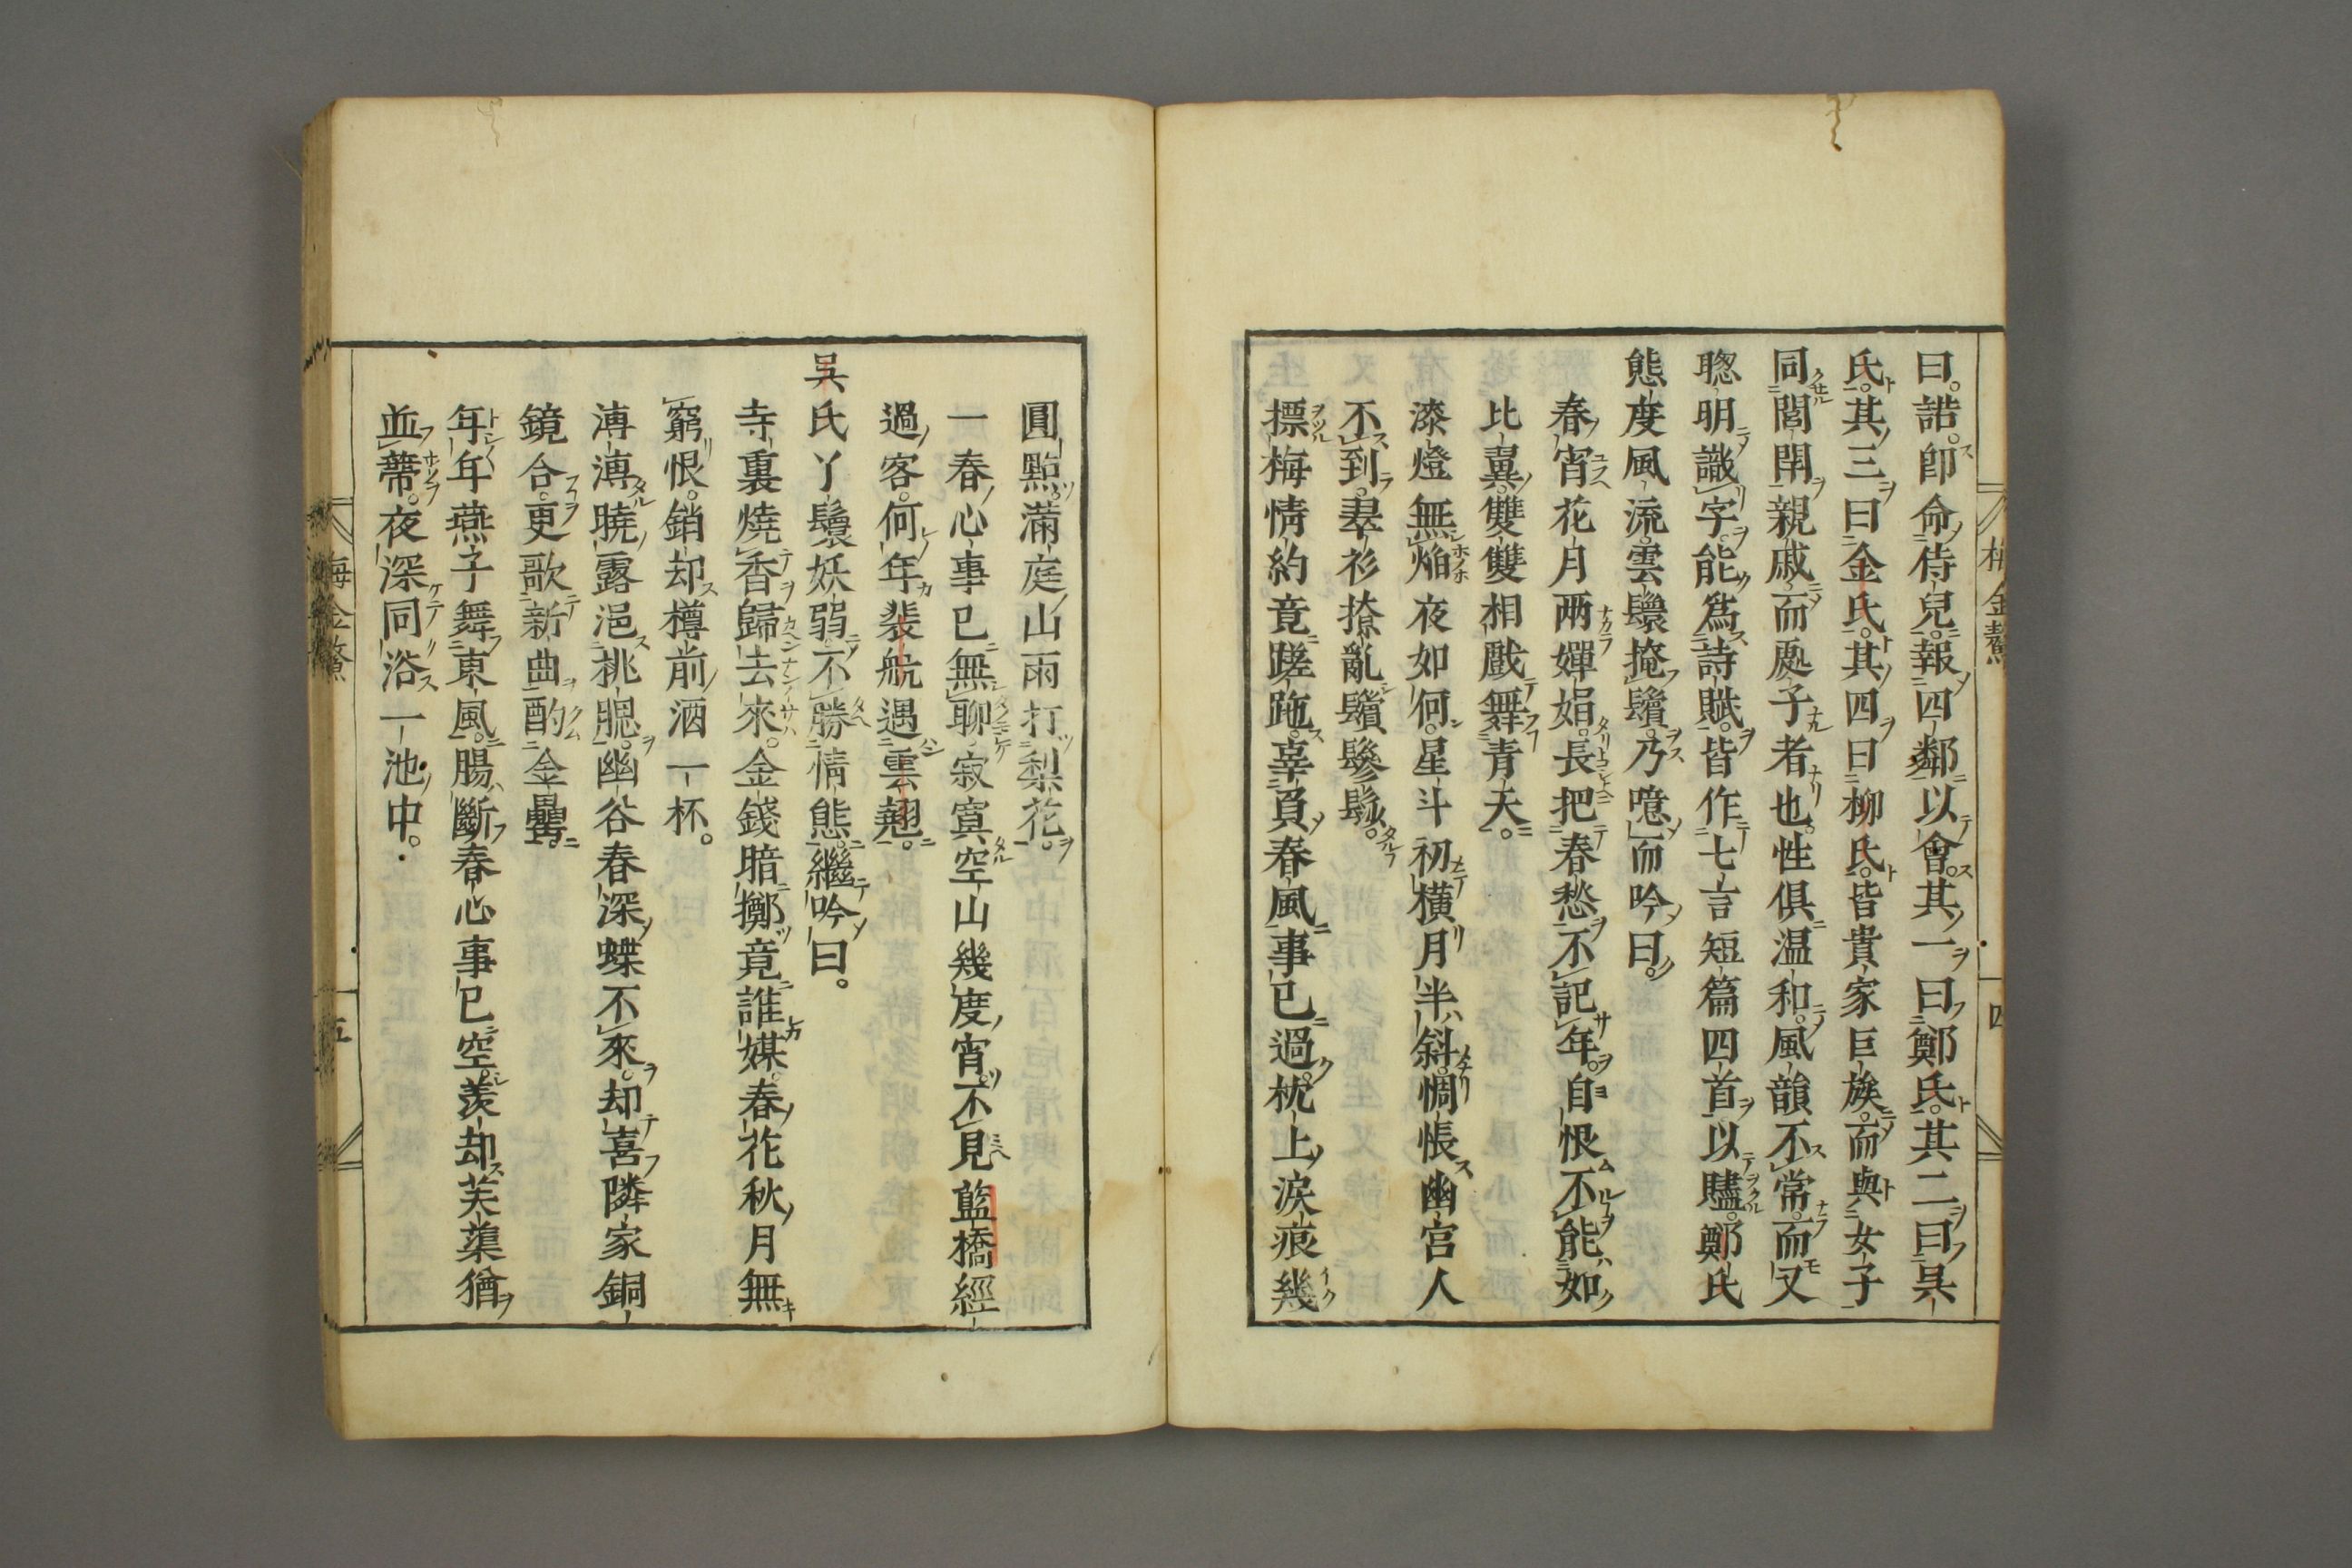 曰。諾。即命侍兒。報四鄰以會。其一曰鄭氏。其二曰吳
氏。其三曰金氏。其四曰柳氏。皆貴家巨族。而與女子
同閭閈親戚。而處子者也。性俱温和。風韻不常。而又
聰明識字。能爲詩賦。皆作七言短篇四首以贐。鄭氏
態度風流。雲鬟掩鬢。乃噫而吟曰。
春宵花月两嬋娟。長把春愁不記年。自恨不能如
比翼。雙雙相戲舞青天。
漆燈無焔夜如何。星斗初橫月半斜。惆悵幽宮人
不到。翠衫撩亂鬢鬖髿。
摽梅情約竟蹉跎。辜負春風事已過。枕上淚痕幾
圓點。滿庭山雨打梨花。
一春心事已無聊。寂寞空山幾度宵。不見藍橋經
過客。何年裴航遇雲翹。
吳氏丫鬟妖弱。不勝情態。繼吟曰。
寺裏燒香歸去來。金錢暗擲竟誰媒。春花秋月無
窮恨。銷却樽前酒一杯。
漙漙曉露浥桃腮。幽谷春深蝶不來。却喜隣家銅
鏡合。更歌新曲酌金罍。
年年燕子舞東風。腸斷春心事已空。羨却芙蕖猶
並蔕。夜深同浴一池中。
梅金鰲
四
梅金鰲
五